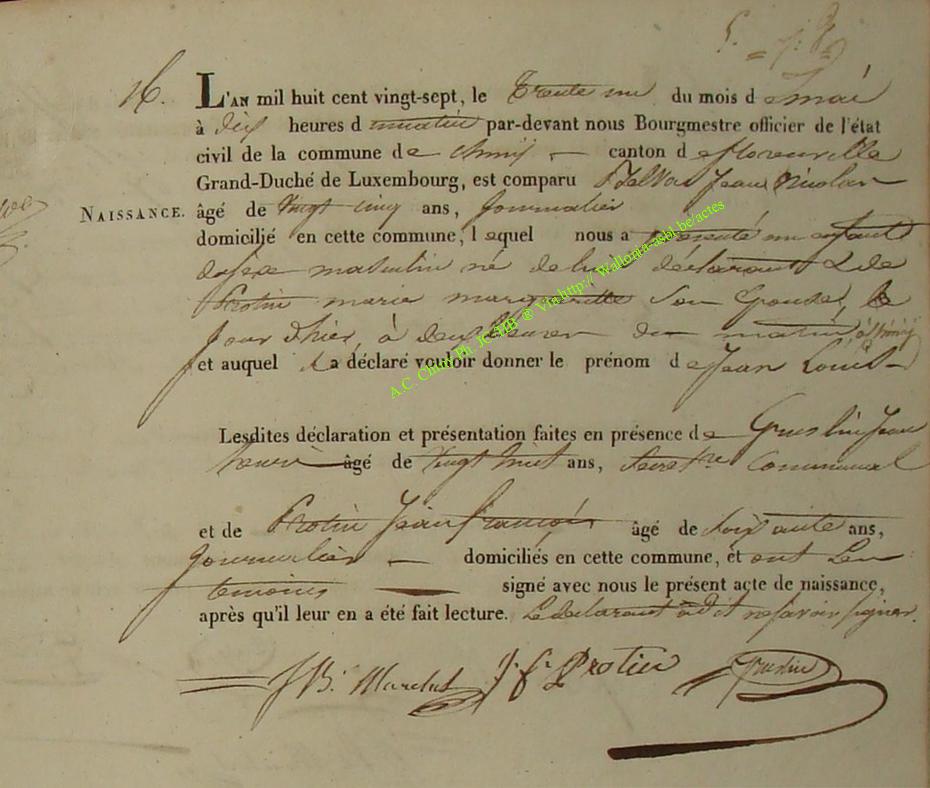 16.
L'AN mil huit cent vingt-sept, le Trente un du mois de mai
à dix heures d matin par-devant nous Bourgmestre officier de l'état
civil de la commune de Chiny — canton de florenville
Grand-Duché de Luxembourg, est comparu Jean Nicolas
NAISSANCE. âgé de vingt cinq ans, Journalier
domicilié en cette commune, lequel nous a présenté un enfant
du sexe masculin né de lui déclarant & de
Protin marie marguerite Son Epouse, le
Jour d'hier, à deux heures du matin, à Chiny
et auquel il a déclaré vouloir donner le prénom de Jean Louis
Lesdites déclaration et présentation faites en présence de Jean
henri âgé de vingt huit ans, Secret.re Communal
et de Protin Jean françois âgé de Soixante ans,
Journalier — domiciliés en cette commune, et ont Les
temoins — signé avec nous le présent acte de naissance,
après qu'il leur en a été fait lecture. Le déclarant a dit ne savoir signer.
J. f. Protin
A.C. Chiny Ph. JC HB @ Via http://Wallonia-asbl.be/actes